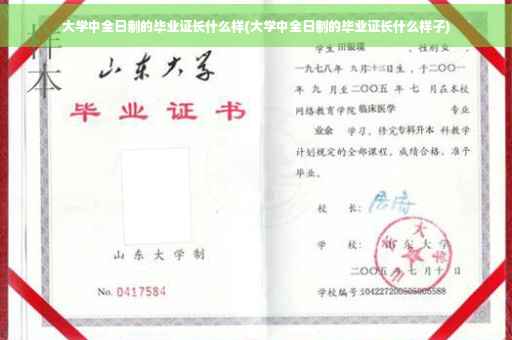 大学中全日制的毕业证长什么样(大学中全日制的毕业证长什么样子)
样本
山东大学
毕业证书
山东大学制
No. 0417584
学生 田银瑞 ,性别女,
一九七八年 九月十三日生,于二〇〇一
年 九 月至二〇〇五 年 七 月在本校
网络教育学院 临床医学 专业
业余 学习,修完专科升本 科教学
计划规定的全部课程,成绩合格,准予
毕业。
校 长:
学 校: 山东大学
二〇〇五年七月十日
学校编号:104227200505005588